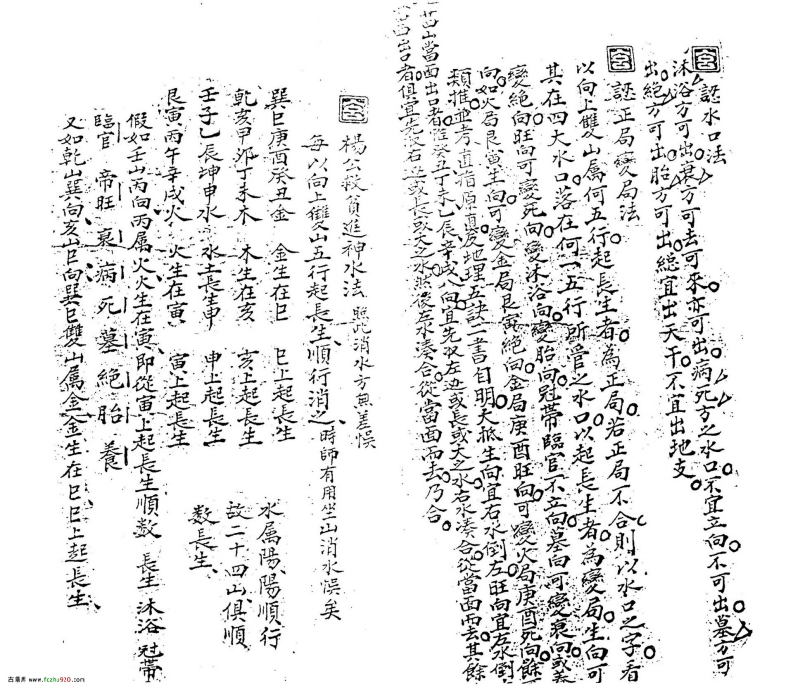 認水口法
沐浴方可出衰方可去可來亦可出病死方之水口不宜立向不可出墓方可
出絕方可出胎方可出總宜出天干不宜出地支
認正局變局法
以向上雙山屬何五行起長生者為正局若正局不合則以水口之字看
其在四大水口落在何一五行所管之水口以起長生者為變局生向可
變絕向旺向可變死向變沐浴向變胎向冠帶臨官不立向墓向可變衰向或養
向如火局艮寅生向可變金局艮寅絕向金局庚酉旺向可變火局庚酉死向餘可
類推並考直指原真及地理五訣二書自明大抵生向宜右水倒左旺向宜左水倒
右出口者惟癸丁未乙辰辛戌八向宜先收左邊或長或大之水右水湊合從當面而去其餘
廿四山當面出口者俱宜先收右邊或長或大之水然後左水湊合從當面而去乃合
楊公救貧進神水法 照此消水方無差悞
每以向上雙山五行起長生順行消之 時師有用坐山消水悞矣
巽巳庚酉癸丑金 金生在巳 巳上起長生
乾亥甲卯丁未木 木生在亥 亥上起長生
壬子乙辰坤申水 水土長生申 申上起長生
艮寅丙午辛戌火 火生在寅 寅上起長生
水屬陽陽順行
故二十四山俱順
數長生
假如壬山丙向丙屬火火生在寅即從寅上起長生順数 長生 沐浴 冠帶
臨官 帝旺 衰 病 死 墓 絕 胎 養
又如乾山巽向亥山巳向巽巳雙山屬金金生在巳巳上起長生
古易库 www.fczhu920.com